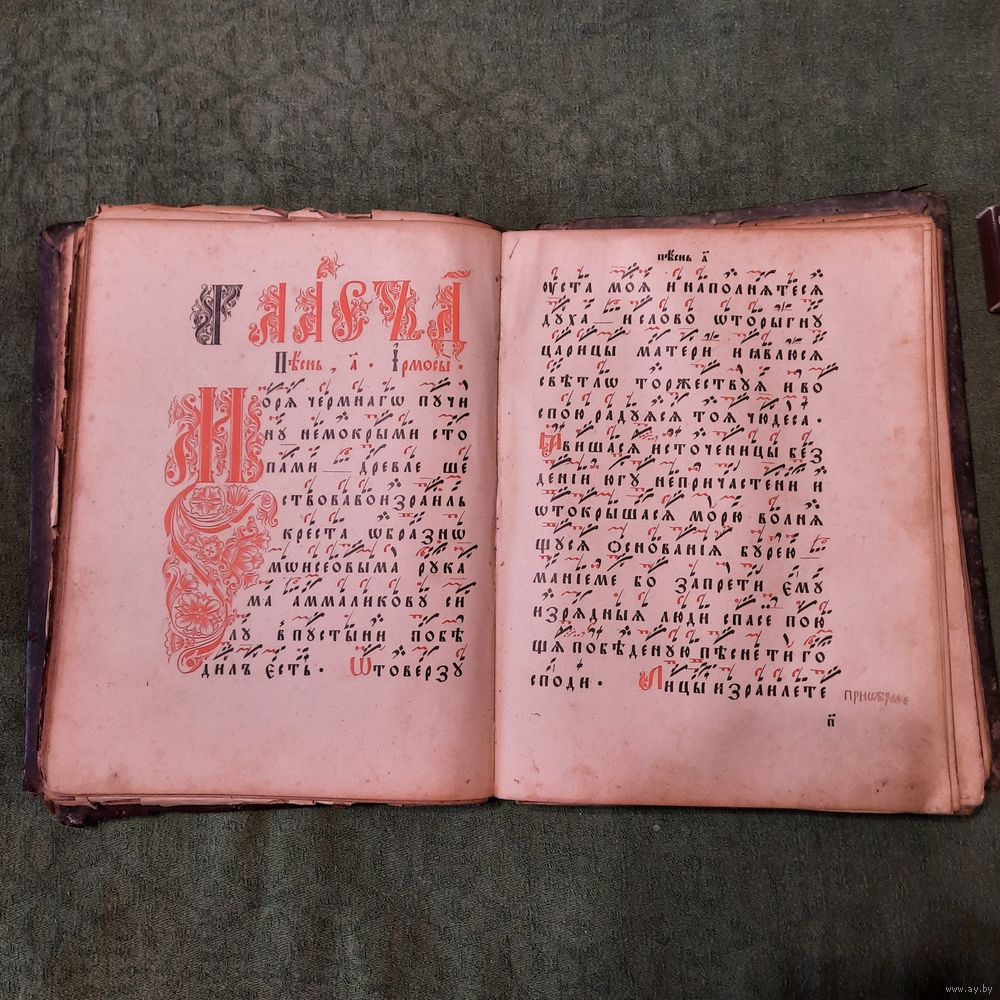 Гласъ д҃
Пѣснь, а҃. І҆рмосы̀.
Моря чермнагѡ пучи
ну немокрыми сто
пами древле ше
ствовавоизраиль
креста ѡбразнѡ
мѡисеовыма рука
ма аммаликову си
лу впустыни побѣ
дилъ єсть. Ѿтоверзу
пѣснь а҃
оуста моя инаполнятеся
духа исловο ѿторыгну
царицы матери иявлюся
свѣтлѡ торжествуя иво
спою радуяся тоя чюдеса.
Явишася источеницы без
деніи югу непричастени и
ѿтокрышася морю волня
щуся основанія бурею
маніеме бо запрети єму
изрядныя люди спасе пою
щя побѣденую пѣсне ти го
споди. Лицы израилете
приѡбраже
п҃
www.ay.by